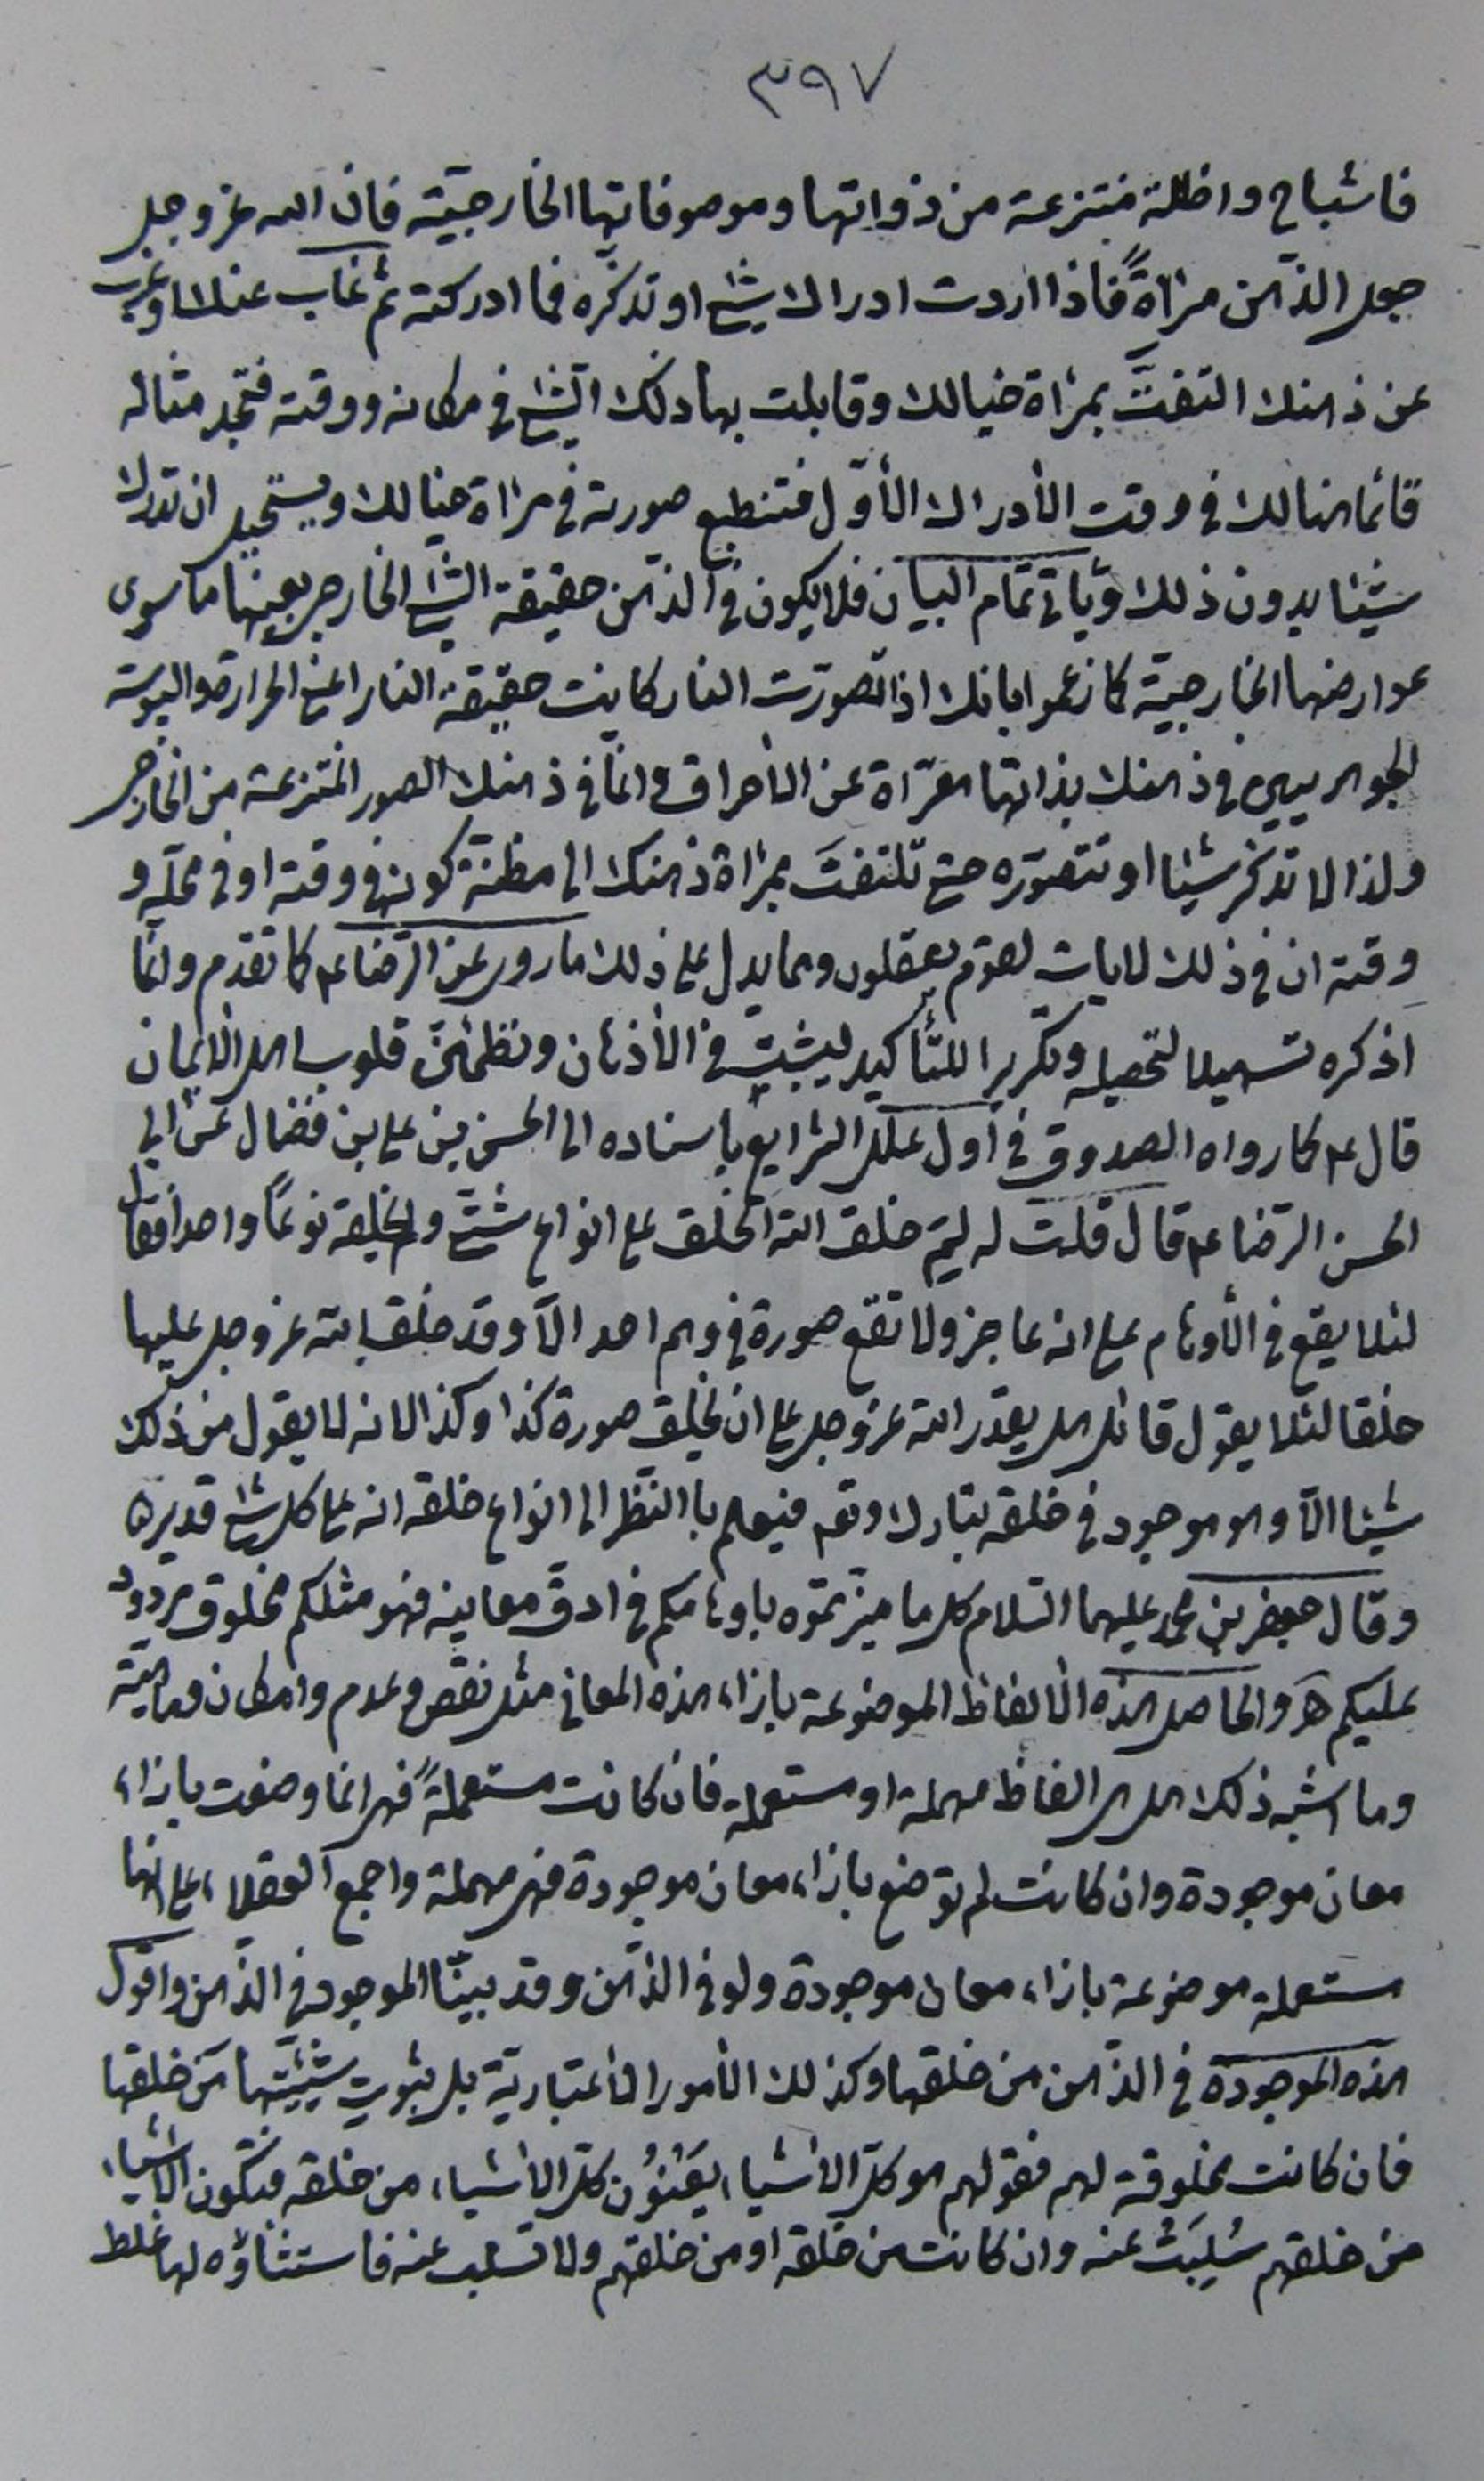 ٣٩٧
فاشباح واظلة منتزعة من ذواتها وموصوفاتها الخارجيّة فان الله عز وجل
جعل الذّهن مرآةً فاذا اردت ادراك شئ او تذكّره فما ادركته ثم غاب عنك او غرب
عن ذهنك التفتَّ بمرآة خيالك وقابلت بها ذلك الشئ في مكانه ووقته فتجد مثاله
قائما هنالك في وقت الأدراك الأوّل فتنطبع صورته في مرآة خيالك ويستحيل ان تدرك
شيئا بدون ذلك ويأتي تمام البيان فلا يكون في الذّهن حقيقة الشئ الخارجى بعينها ما سوى
عوارضها الخارجيّة كما زعموا بانك اذا تصوّرت النار كانت حقيقة النار اعنى الحرارة واليبوسة
الجوهريين في ذهنك بذاتها معرّاة عن الأحراق وانّما في ذهنك الصور المنتزعة من الخارج
ولذا لا تذكر شيئا او تتصوّره حتى تلتفتَ بمرآة ذهنك الى مظنّة كونه في وقته او في محلّه و
وقته ان في ذلك لايات لقوم يعقلون ومما يدل على ذلك ما روى عن الرّضا ع كما تقدم وانّما
اذكره تسهيلا لتحصيله وتكريرا للتأكيد ليثبت في الأذهان وتطمئنّ قلوب اهل الايمان
قال ع كما رواه الصدوق في اول علل الشرايع باسناده الى الحسن بن على بن فضال عن ابى
الحسن الرّضا ع قال قلت له لِمَ خلق الله الخلق على انواع شتّى ولم يخلقه نوعًا واحدا فقال
لئلا يقع في الأوهام على انه عاجز ولا تقع صورة في وهم احد الّا وقد خلق الله عز وجل عليها
خلقا لئلا يقول قائل هل يقدر الله عز وجل على ان يخلق صورة كذا وكذا لانه لا يقول من ذلك
شيئا الّا وهو موجود في خلقه تبارك وتع فيعلم باالنّظر الى انواع خلقه انه على كل شئ قدير ه
وقال جعفر بن محمد عليهما السّلام كل ما ميّزتموه باوهامكم في ادقّ معانيه فهو مثلكم مخلوق مردود
عليكم هـ والحاصل هذه الألفاظ الموضوعة بازاء هذه المعاني مثل نقص وعدم وامكان وماهيّة
وما اشبه ذلك هل هى الفاظ مهملة او مستعملة فان كانت مستعملةً فهى انما وضعت بازاء
معان موجودة وان كانت لم توضع بازاء معان موجودة فهى مهملة واجمع العقلاء على انها
مستعملة موضوعة بازاء معان موجودة ولو في الذّهن وقد بيّنّا الموجود في الذّهن واقول
هذه الموجودة في الذّهن من خلقها وكذلك الأمور الأعتباريّة بل بثبوت شيئيّتها مَن خلقها
فان كانت مخلوقة لهم فقولهم هو كلّ الأشياء يَعْنُوُن كلّ الأشياء من خلقه فتكون الأشياء
من خلقهم سُلِبَتْ عنه وان كانت من خلقه او من خلقهم ولا تسلب عنه فاستثناؤه لها غلط